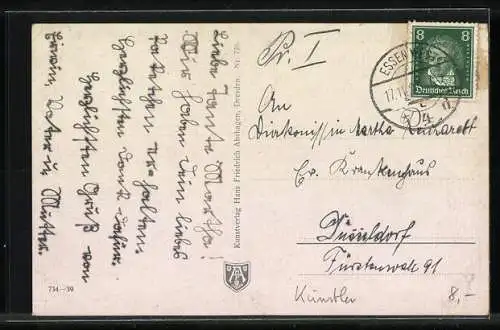 Liebe Tante Martha!
Wir haben Dein liebes
Paketchen erhalten.
Herzlichsten Dank dafür.
Herzlichsten Gruß von
Vater u. Mutter.
Kunstverlag Hans Friedrich Abshagen, Dresden. Nr. 739.
734—39
Pr. I
ESSEN
17.11.
8 8
Deutsches Reich
An
Diakonissin Martha
Ev. Krankenhaus
Düsseldorf
Fürstenwall 91
Künstler
8,-